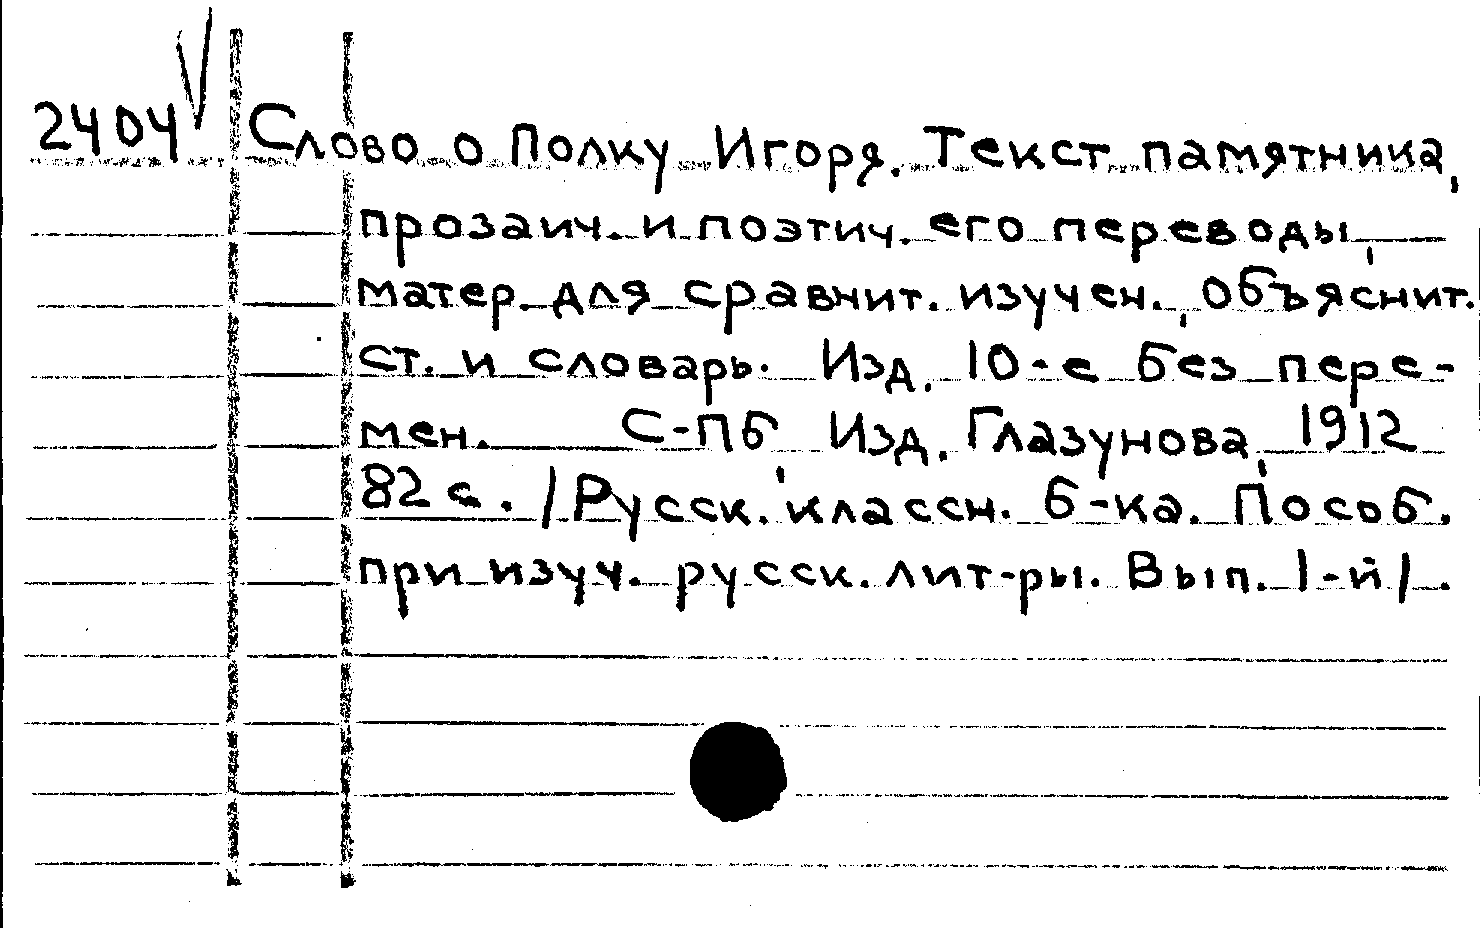 2404 Слово о Полку Игоря. Текст памятника,
прозаич. и поэтич. его переводы,
матер. для сравнит. изучен., объяснит.
ст. и словарь. Изд. 10-е без пере-
мен. С-Пб, Изд. Глазунова, 1912
82 с. /Русск. классн. б-ка. Пособ.
при изуч. русск. лит-ры. Вып. 1-й/.